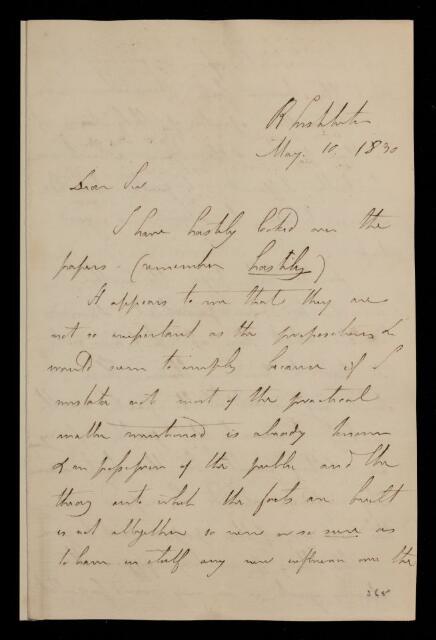 R Institution
May. 10, 1830
Dear Sir
I have hastily looked over the
papers. (remember hastily)
It appears to me that they are
not so important as the proposition &
would seem to imply because if I
mistake not most of the practical
matter mentioned is already known
& in possession of the public and the
theory into which the facts are built
is not altogether so new or so sure as
to have in itself any new influence over the
268